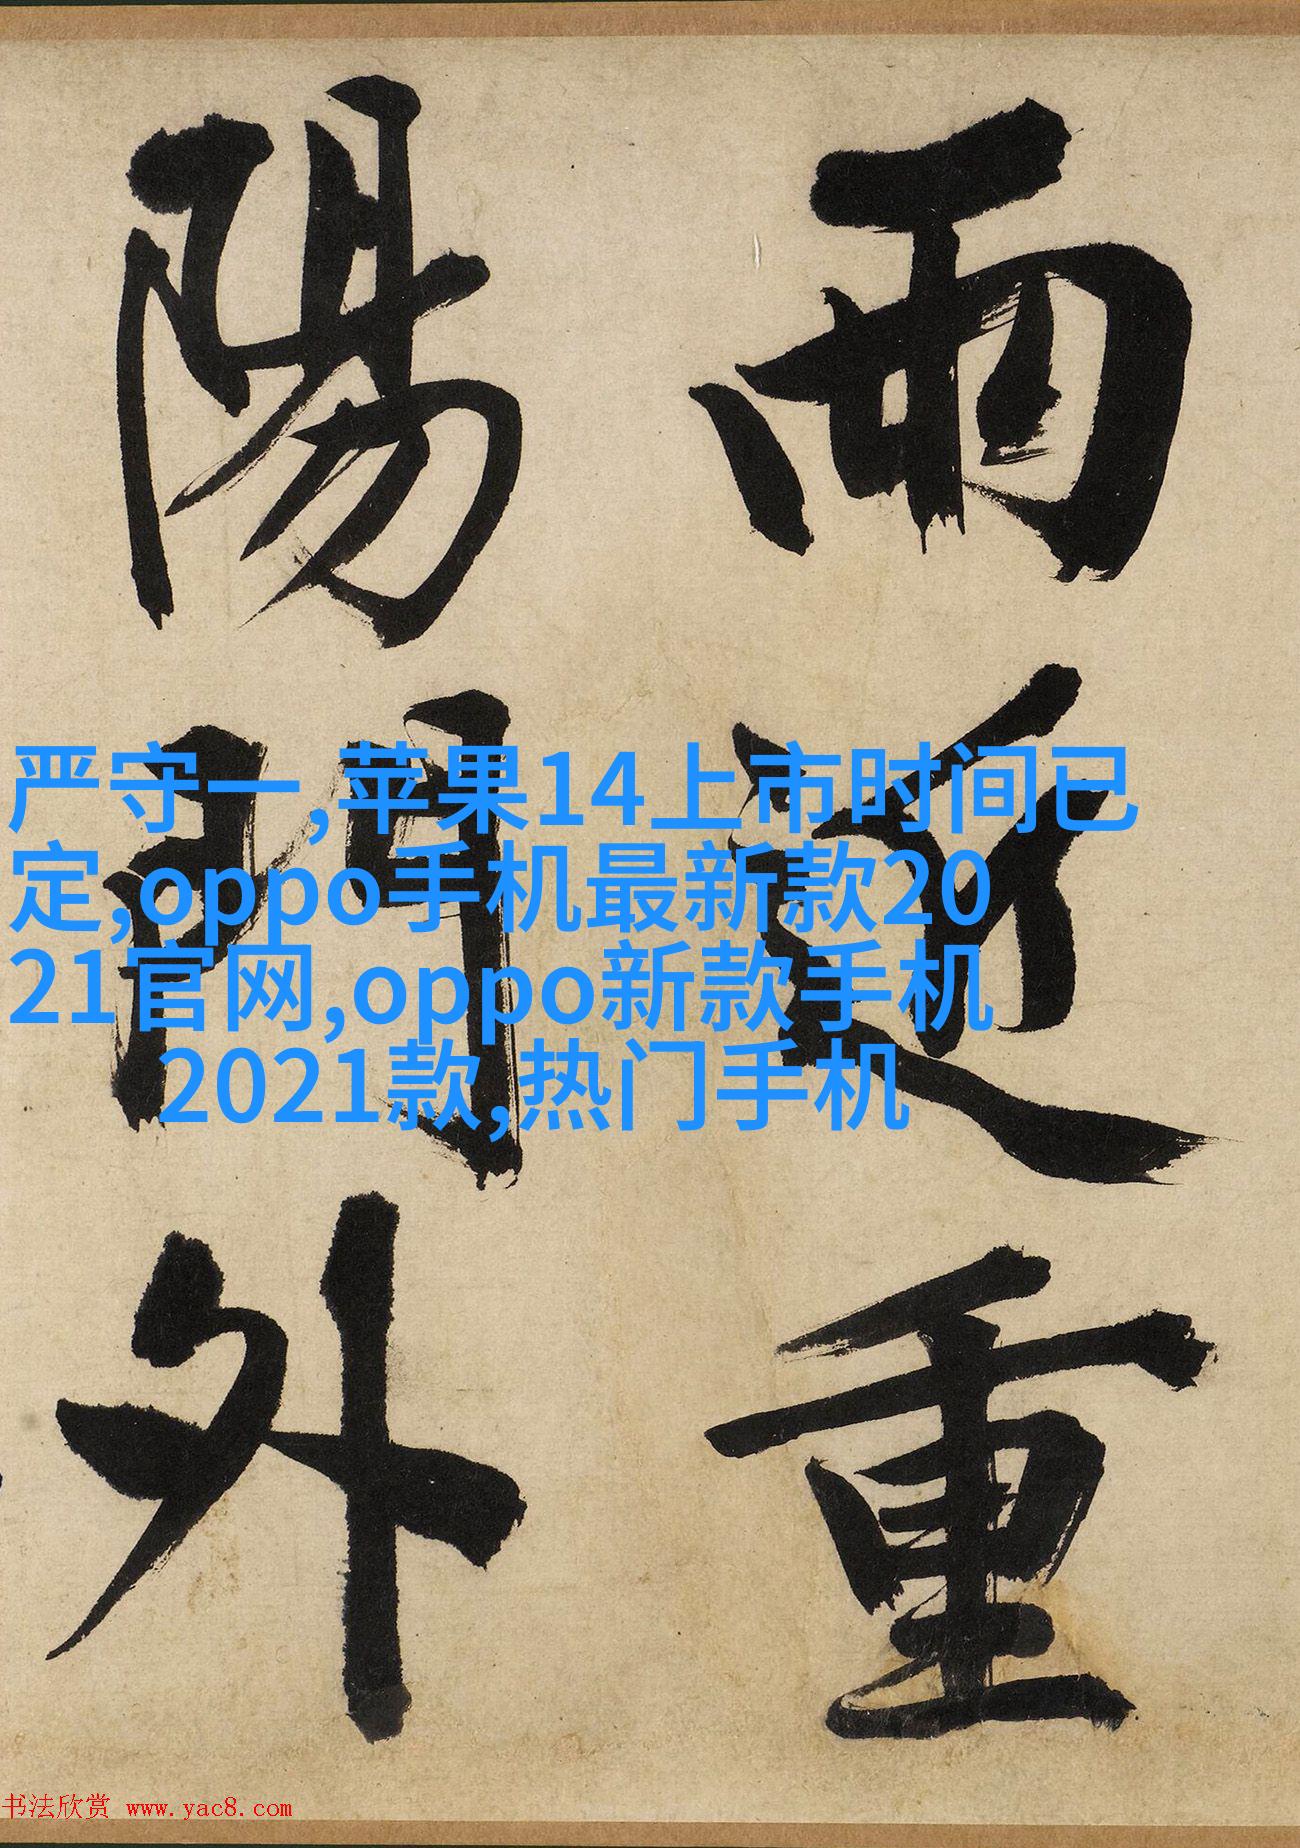 雨延重
陽門外
严守一,苹果14上市时间已
定,oppo手机最新款20
21官网,oppo新款手机
2021款,热门手机
书法欣赏 www.yac8.com